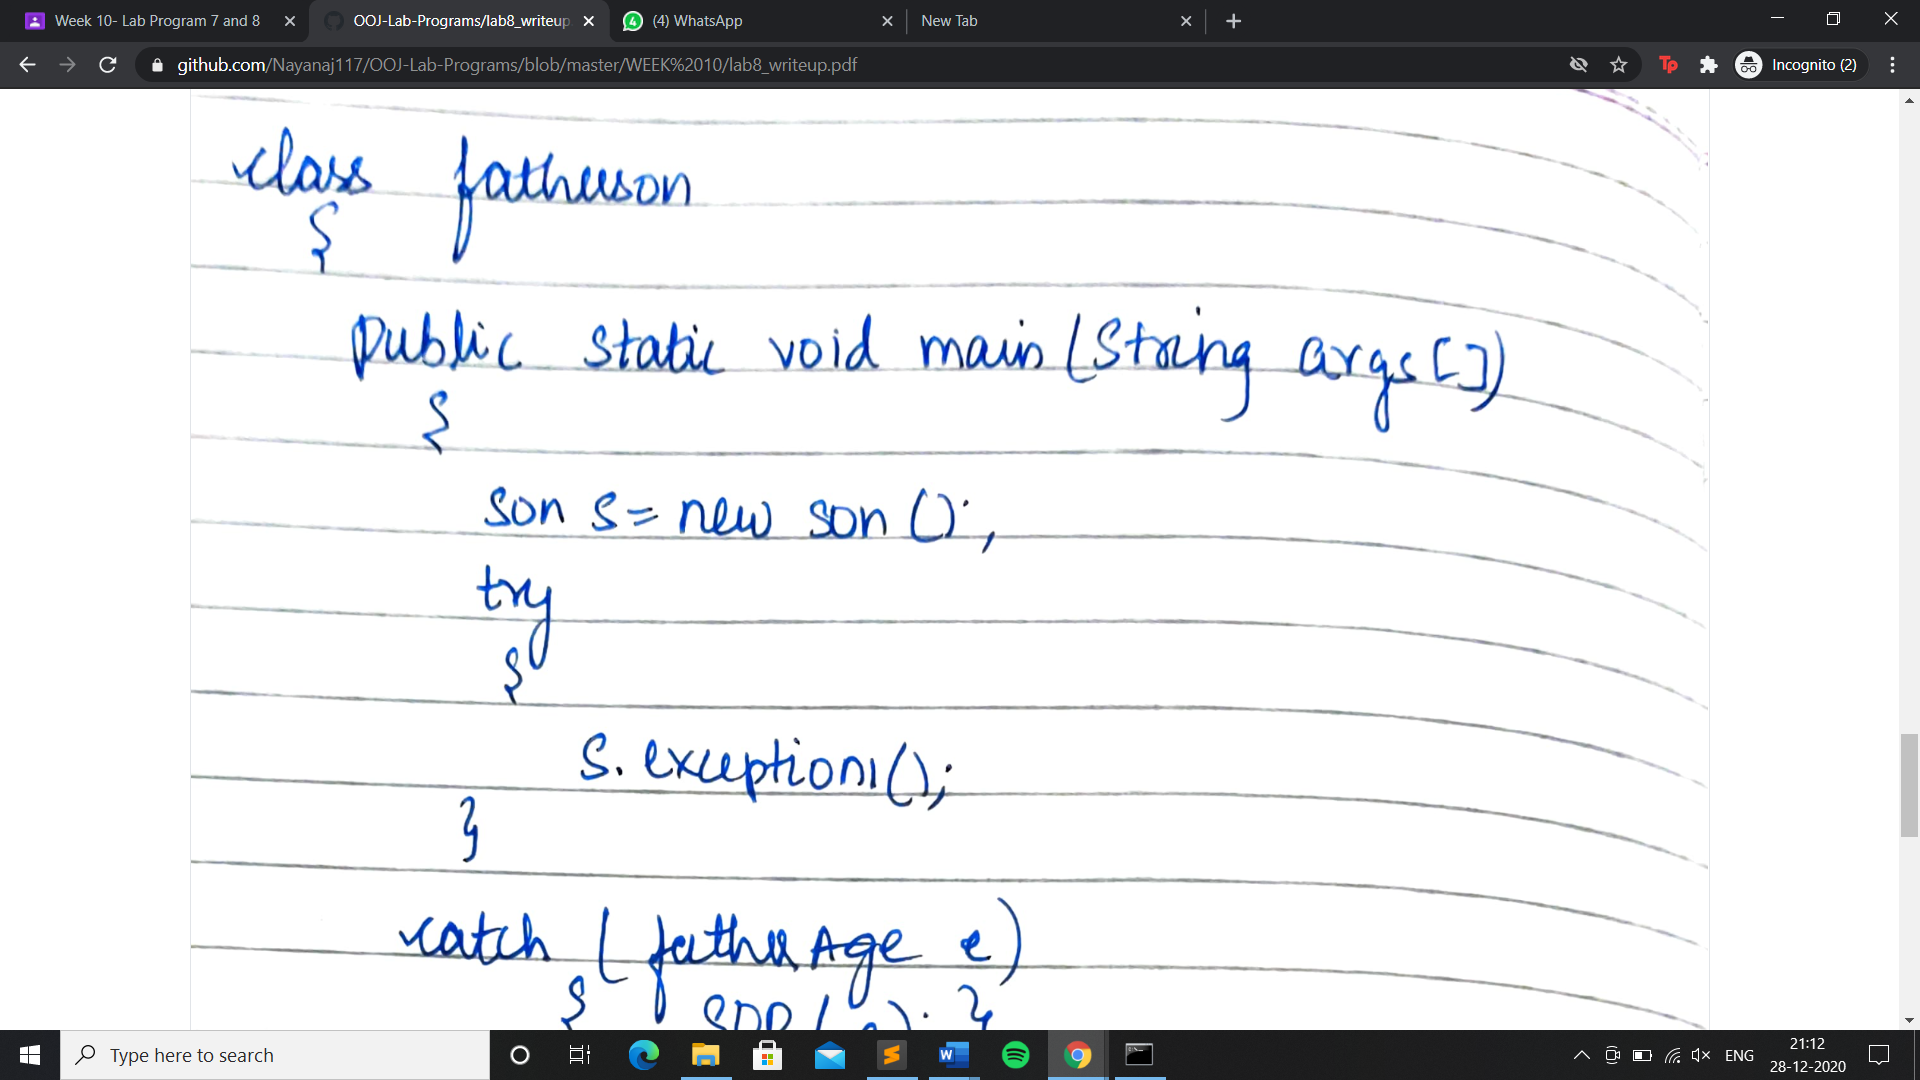 Week 10- Lab Program 7 and 8
OOJ-Lab-Programs/lab8_writeup
(4) WhatsApp
New Tab
github.com/Nayanaj117/OOJ-Lab-Programs/blob/master/WEEK%2010/lab8_writeup.pdf
Incognito (2)
class fatherson
{
public static void main (String args[])
{
son s = new son ();
try
{
s. exception1();
}
catch ( father Age e)
{ SOP( e); }
Type here to search
ENG
21:12
28-12-2020